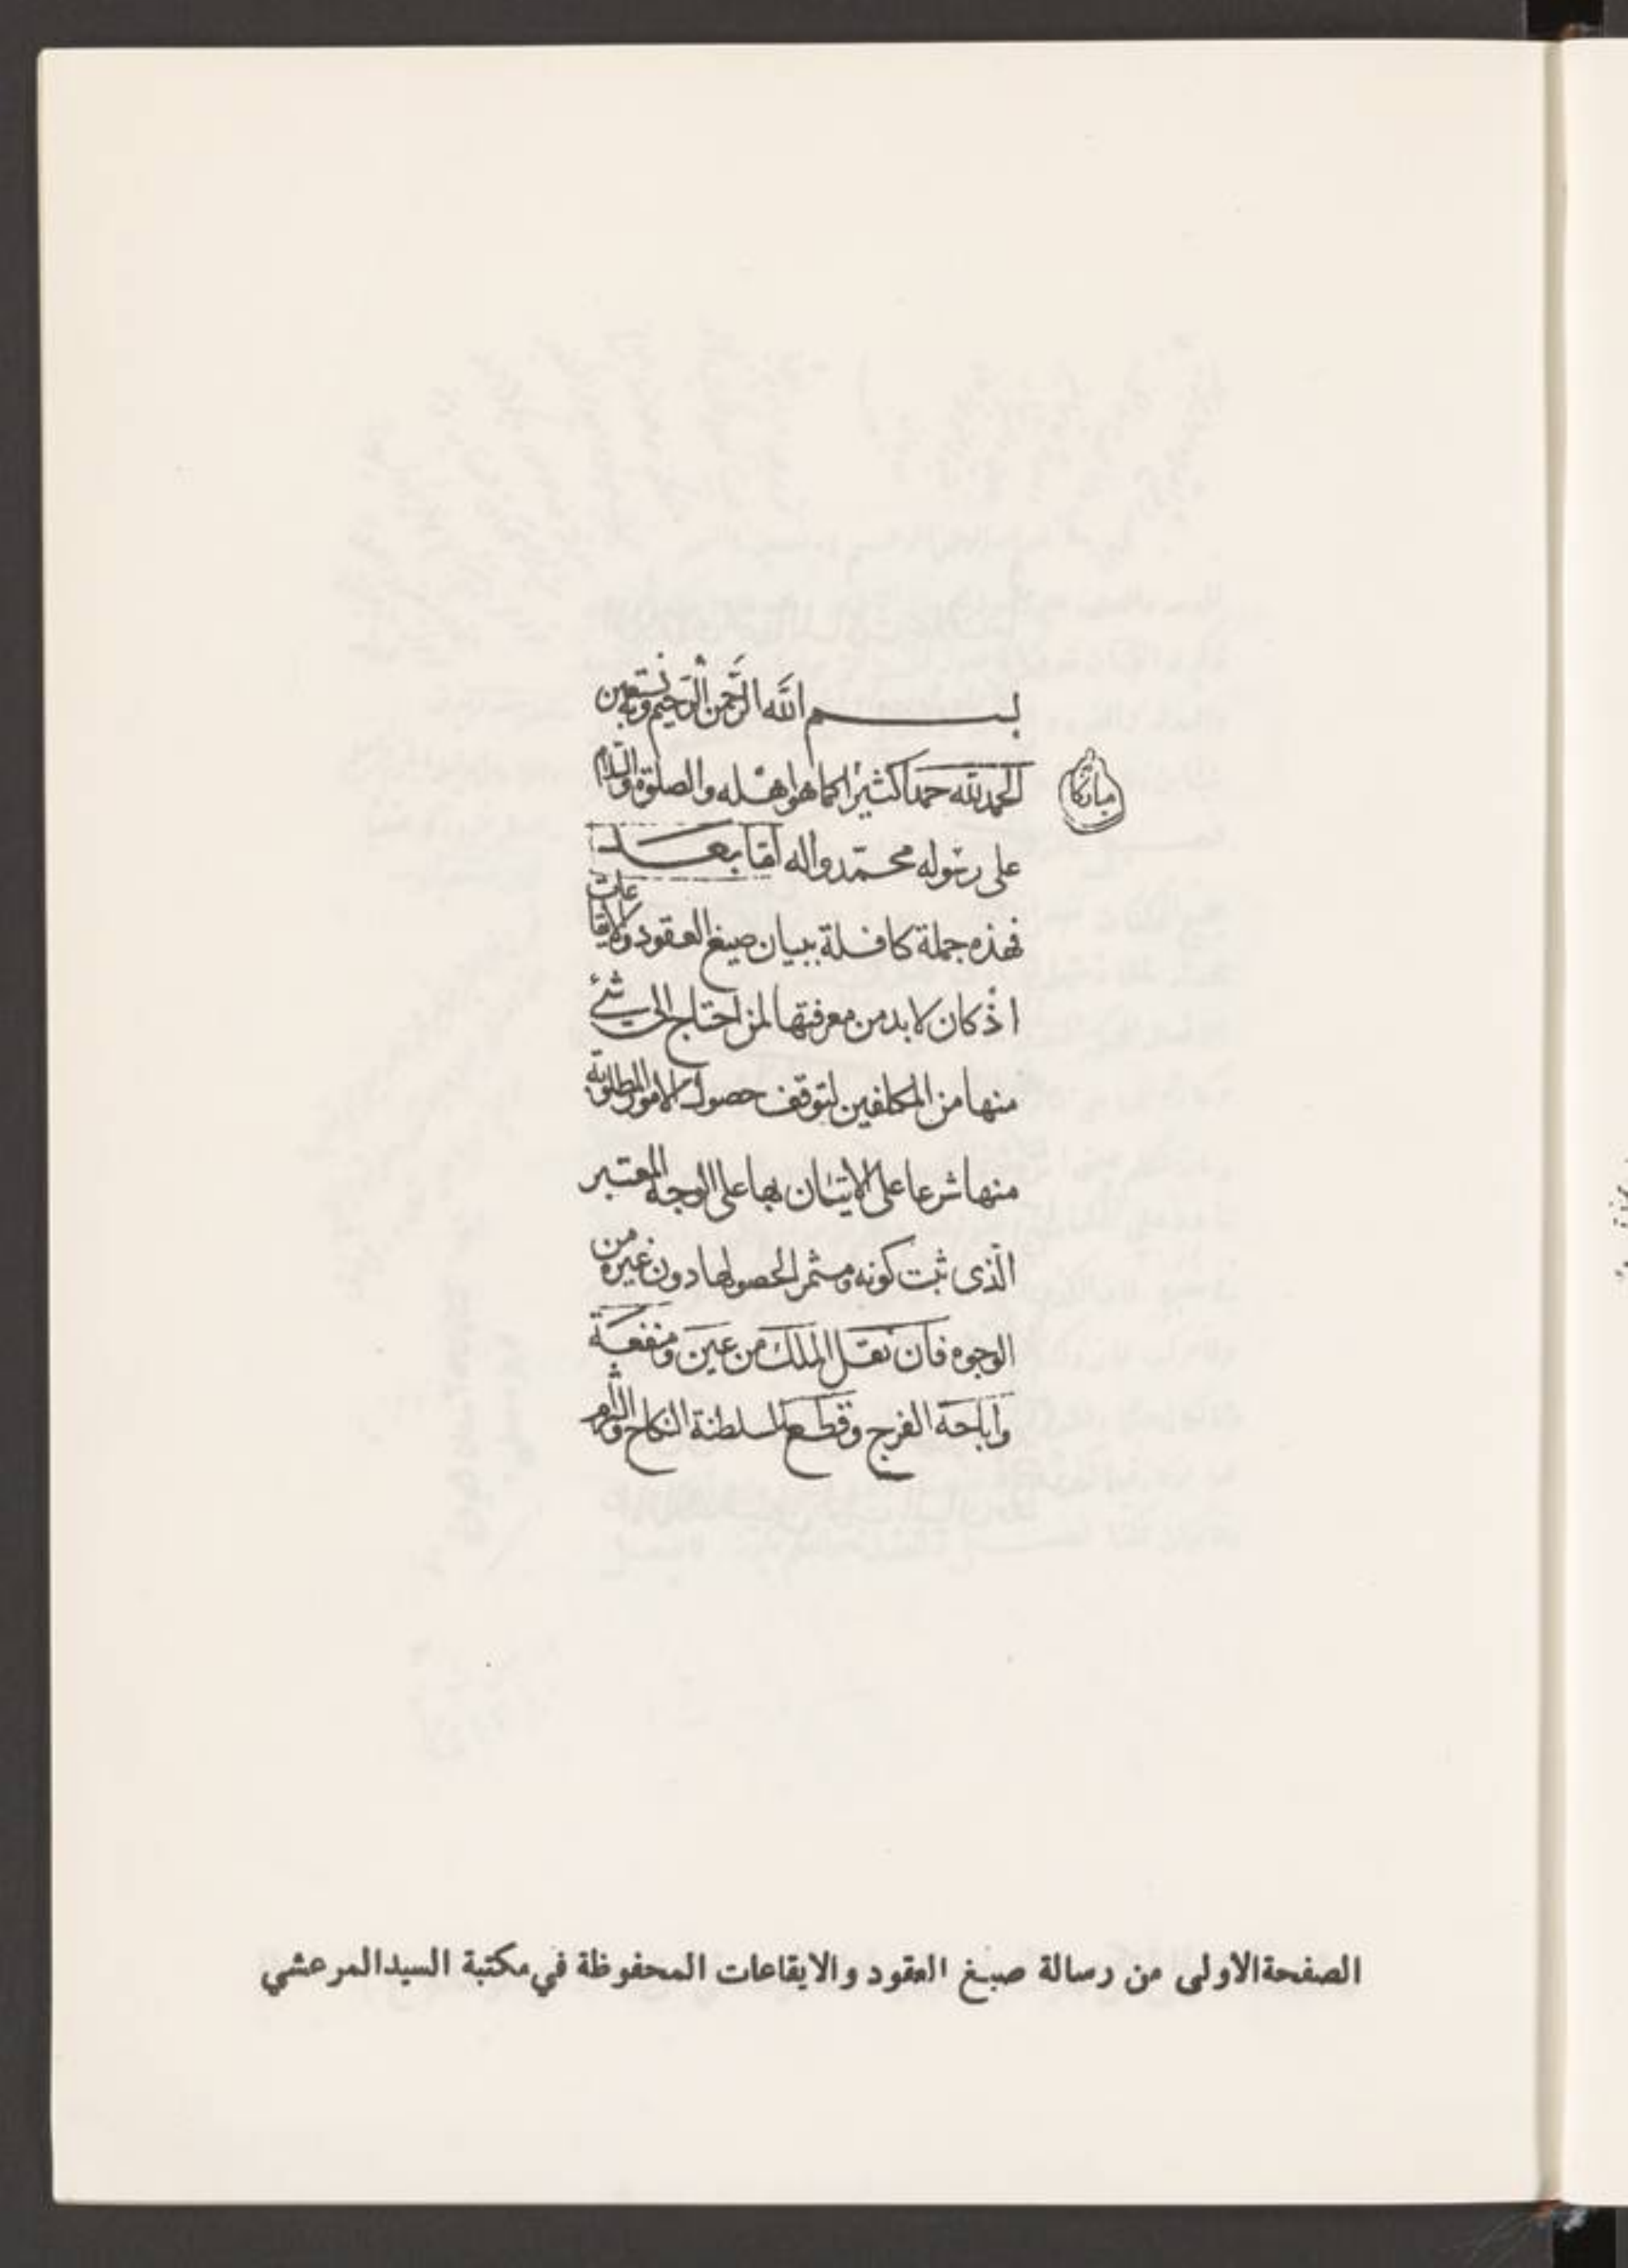 بسم الله الرحمن الرحيم وبه نستعين
الحمد لله حمدا كثيرا كما هو اهله والصلوة والسلام
مباركا
على رسوله محمد واله اما بعد
فهذه جملة كافلة ببيان صيغ العقود والايقاعات
اذ كان لا بد من معرفتها لمن احتاج الى شئ
منها من المكلفين لتوقف حصول الامور المطلوبة
منها شرعا على الاتيان بها على الوجه المعتبر
الذى ثبت كونه مثمر لحصولها دون غيره من
الوجوه فان نقل الملك من عين ومنفعة
واباحة الفرج وقطع سلطنة النكاح
الصفحة الاولى من رسالة صيغ العقود والايقاعات المحفوظة في مكتبة السيد المرعشي